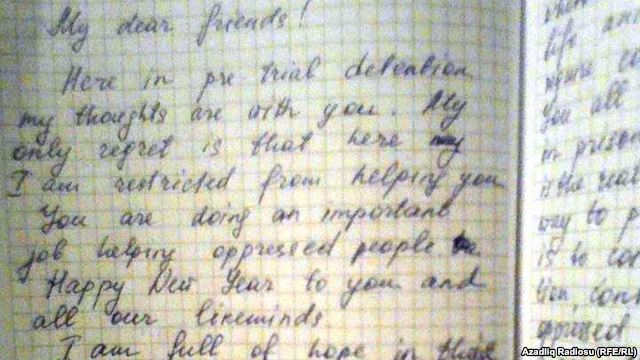 My dear friends!
Here in pre trial detention
my thoughts are with you. My
only regret is that here
I am restricted from helping you
You are doing an important
job helping oppressed people.
Happy New Year to you and
all our likeminds
I am full of hope in
life and
You all
in prison
is the real
way to p
is to co
tion, con
Azadliq Radiosu (RFE/RL)